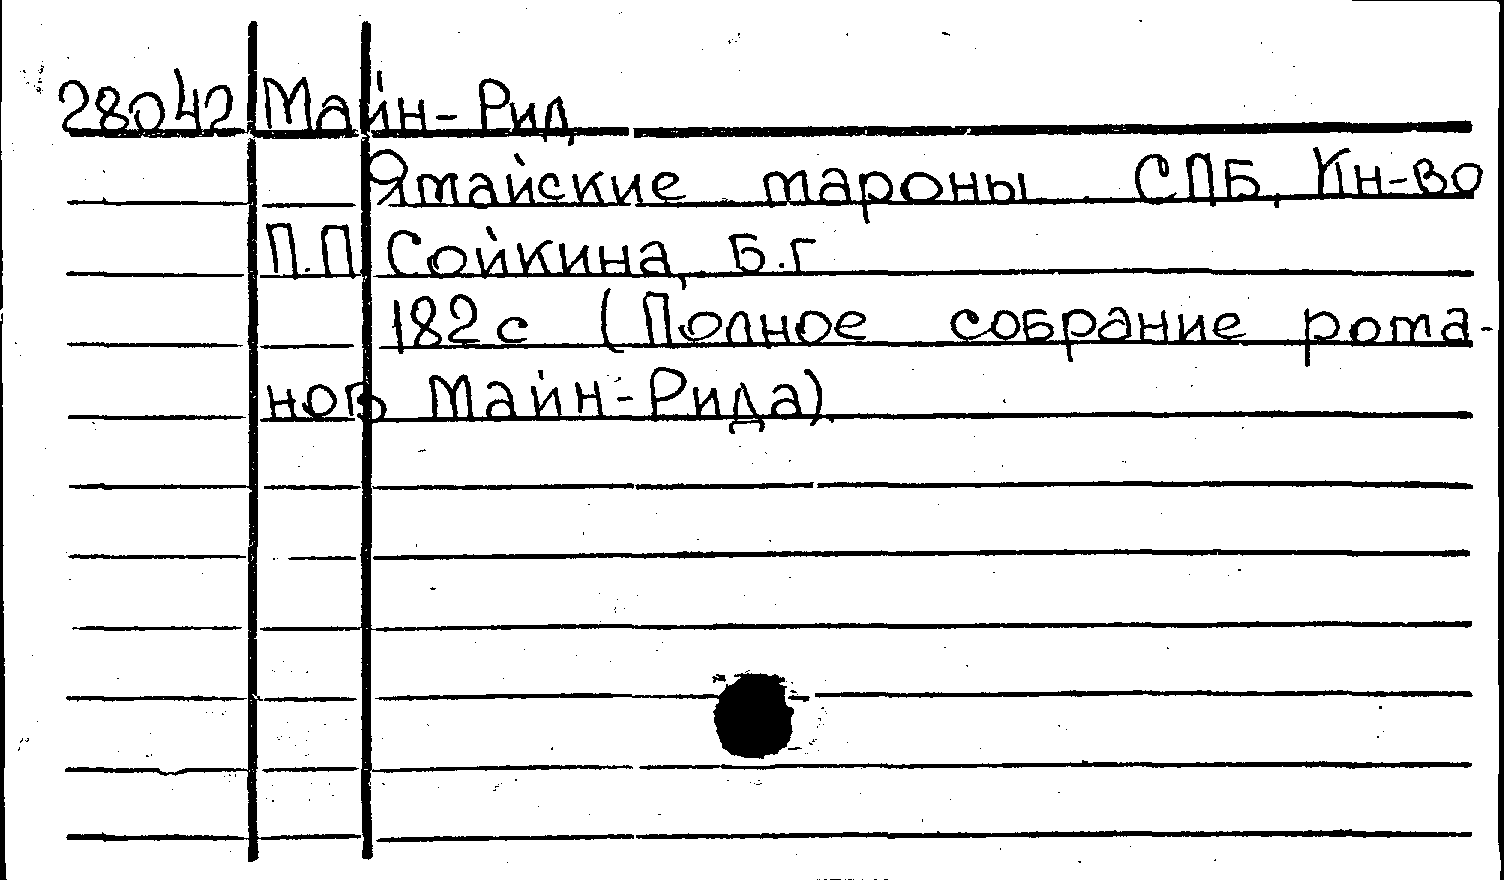 28042 Майн-Рид
Ятайские тароны СПБ, Кн-во
П.П Сойкина, Б.г
182 с (Полное собрание рота-
ного Майн-Рида)